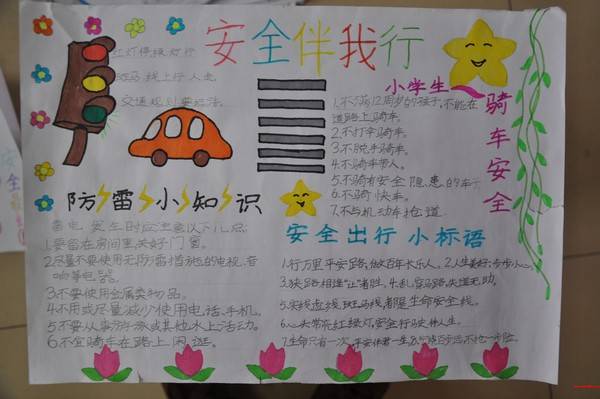 安全伴我行
红灯停绿灯行
斑马线上行人走
交通规则要记活。
小学生
骑车安全
1.不满12周岁的孩子，不能在
道路上骑车。
2.不打伞骑车。
3.不脱手骑车。
4.不骑车带人。
5.不骑有安全隐患的车子
6.不骑快车。
7.不与机动车抢道
防雷小知识
雷电发生时应注意以下几点：
1.要留在房间里，关好门窗。
2.尽量不要使用无防雷措施的电视、音
响等电器。
3.不要使用金属类物品。
4.不用或尽量减少使用电话、手机。
5.不要从事游泳或其他水上活动。
6.不宜骑车在路上闲逛。
安全出行小标语
1.行万里平安路，做百年长乐人。2.人生美好，步步小心。
3.狭路相逢“让”者胜，4.乱穿马路，失道无助。
5.实线虚线斑马线都是生命安全线。
6.心头常亮红绿灯，安全行驶
7.生命只有一次，平安伴君一生 不抢一步险。